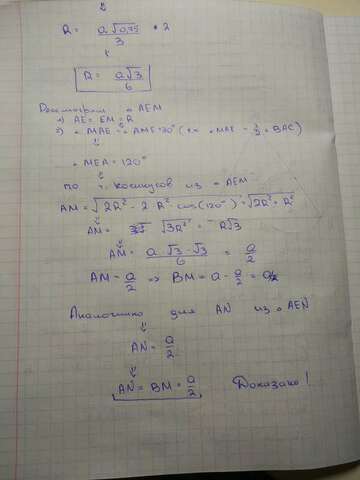 R = a√0,75 / 3 • 2
R = a√3 / 6
Рассмотрим △ AEM
1) AE = EM = R
2) ∠ MAE = ∠ AME = 30° (т.к ∠ MAE = 1/2 ∠ BAC)
⇓
∠ MEA = 120°
⇓
по т. косинусов из △ AEM
AM = √2R² - 2 R² cos(120°) = √2R² + R²
⇓
AM = √3R² = R√3
⇓
AM = a · √3 · √3 / 6 = a/2
AM = a/2 ⇒ BM = a - a/2 = a/2
Аналогично для AN из △ AEN
⇓
AN = a/2
⇓
AN = BM = a/2 Доказано!